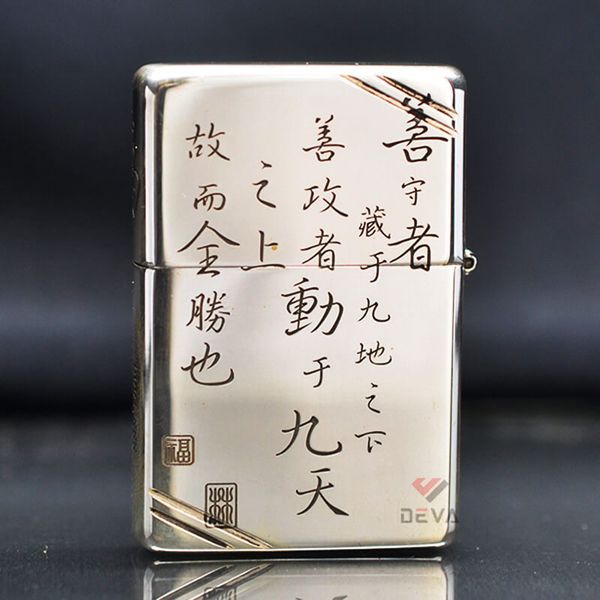 善守者
藏于九地之下
善政者動于九天
之上
故而全勝也
福
DEVA